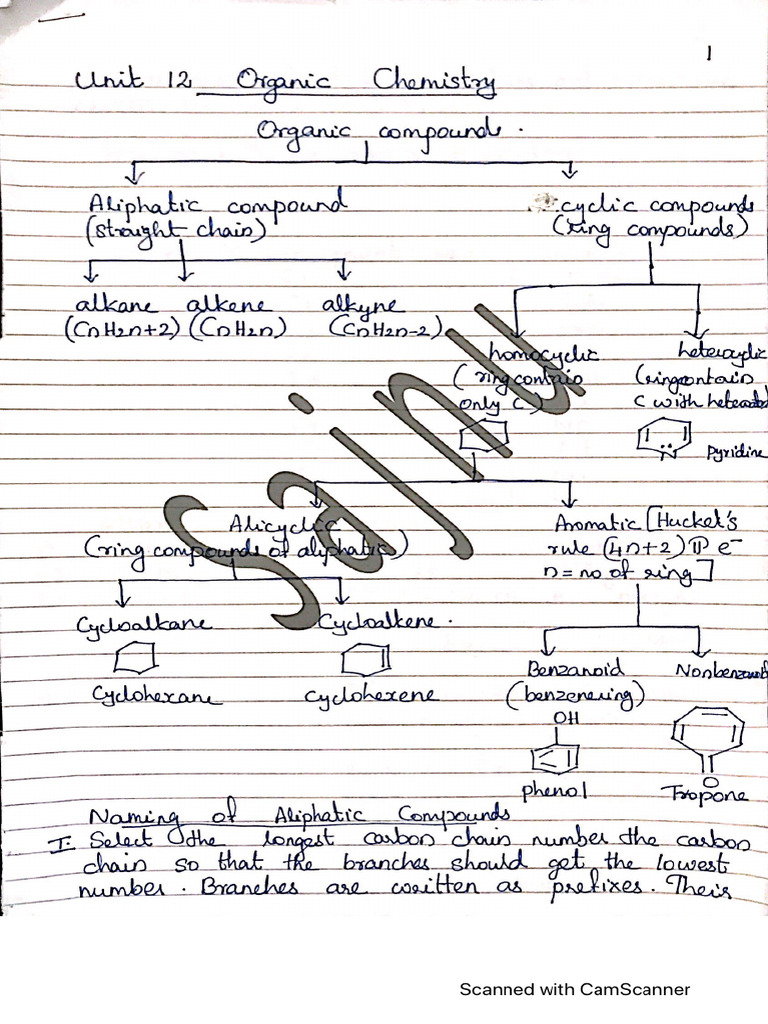 1
Unit 12 Organic Chemistry
Organic compounds.
Aliphatic compound
(straight chain)
cyclic compounds
(ring compounds)
alkane alkene alkyne
(CnH2n+2) (CnH2n) (CnH2n-2)
homocyclic
(ring contain
only C)
heterocyclic
(ring contain
C with
Pyridine
N
Sajnu
Alicyclic
(ring compounds of aliphatic)
Aromatic [Huckel's
rule (4n+2) π e-
n = no of ring]
Cycloalkane
Cyclohexane
Cycloalkene.
cyclohexene
Benzanoid
(benzene ring)
OH
phenol
O
Tropone
Naming of Aliphatic Compounds
I. Select the longest carbon chain number the carbon
chain so that the branches should get the lowest
number. Branches are written as prefixes. Their
Scanned with CamScanner